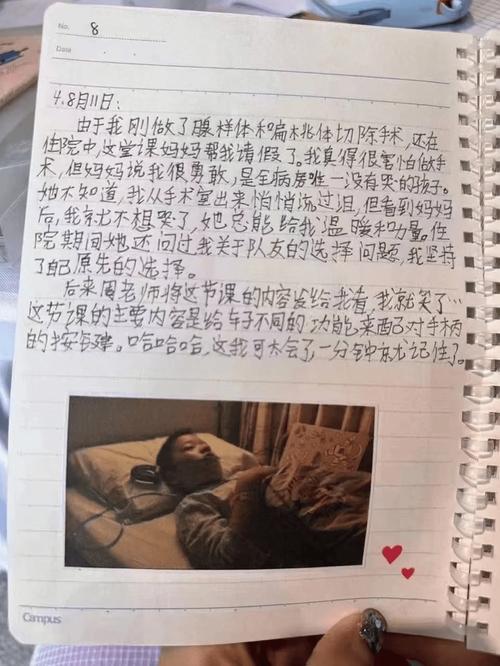 No. 8
Date
4.8月11日:
由于我刚做了腺样体和扁桃体切除手术,还在
住院中,这堂课妈妈帮我请假了。我真得很害怕做手
术,但妈妈说我很勇敢,是全病房唯一没有哭的孩子。
她不知道,我从手术室出来悄悄流过泪,但看到妈妈
后,我就不想哭了,她总能给我温暖和力量。住
院期间她还问过我关于队友的选择问题,我坚持
了自己原先的选择。
后来周老师将这节课的内容发给我看,我就笑了…
这节课的主要内容是给车子不同的功能来匹配对手柄
的按键。哈哈哈,这我可太会了,一分钟就记住了。
Campus